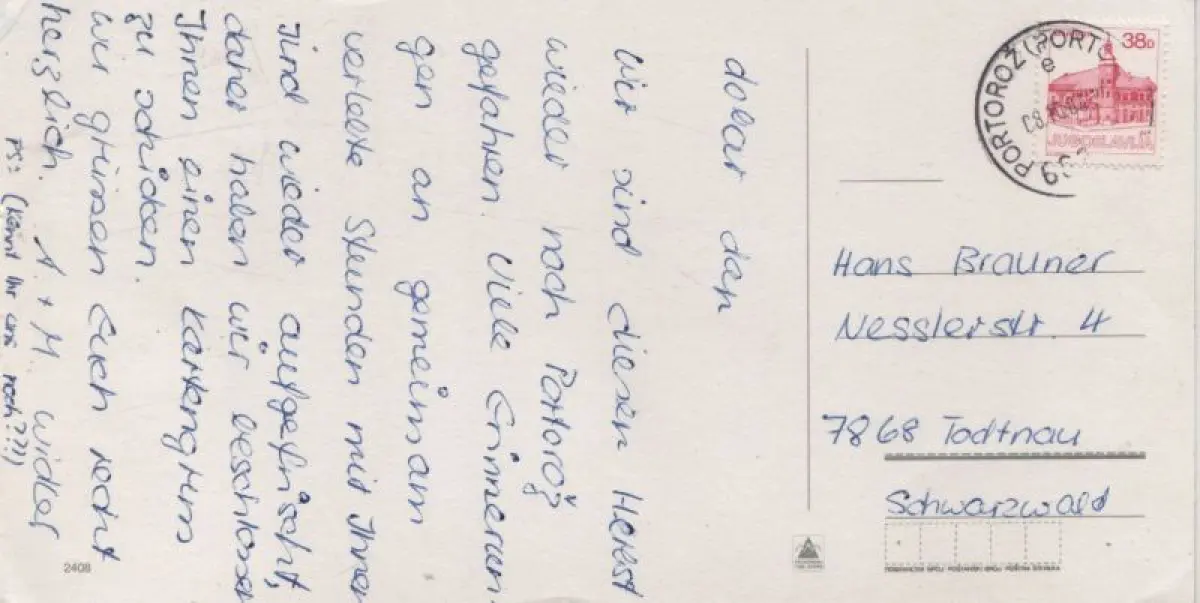 dobar dan
Wir sind diesen Herbst
wieder nach Portorož
gefahren. Viele Erinnerun-
gen an gemeinsam
verlebte Stunden mit Ihnen
sind wieder aufgefrischt,
daher haben wir beschlossen
Ihnen einen Kartengruss
zu schicken.
Wir grüssen Euch recht
herzlich. A + M Widler
PS: (Kennt Ihr uns noch???)
2408
PORTOROŽ (PORTO
38D
JUGOSLAVIJA
Hans Brauner
Nesslerstr. 4
7868 Todtnau
Schwarzwald